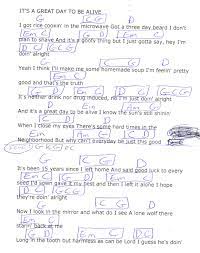 IT'S A GREAT DAY TO BE ALIVE
G C G D
I got rice cookin' in the microwave Got a three day beard I don't
G D Em C
plan to shave And it's a goofy thing but I just gotta say, hey I'm
D C G C G
doin' alright
D
Yeah I think I'll make me some homemade soup I'm feelin' pretty
G C G
good and that's the truth
G D Em C
It's neither drink nor drug induced, no I'm just doin' alright
D C G D
And it's a great day to be alive I know the sun's still shinin'
G C G D
When I close my eyes There's some hard times in the
Em C Em C
Neighborhood But why can't everyday be just this good
G C G D
It's been 15 years since I left home And said good luck to every
Em C G D
seed I'd sown gave it my best and then I left it alone I hope
D C G C G
they're doin' alright
D
Now I look in the mirror and what do I see A lone wolf there
G C G
starin' back at me
G D Em C D C
Long in the tooth but harmless as can be Lord I guess he's doin'